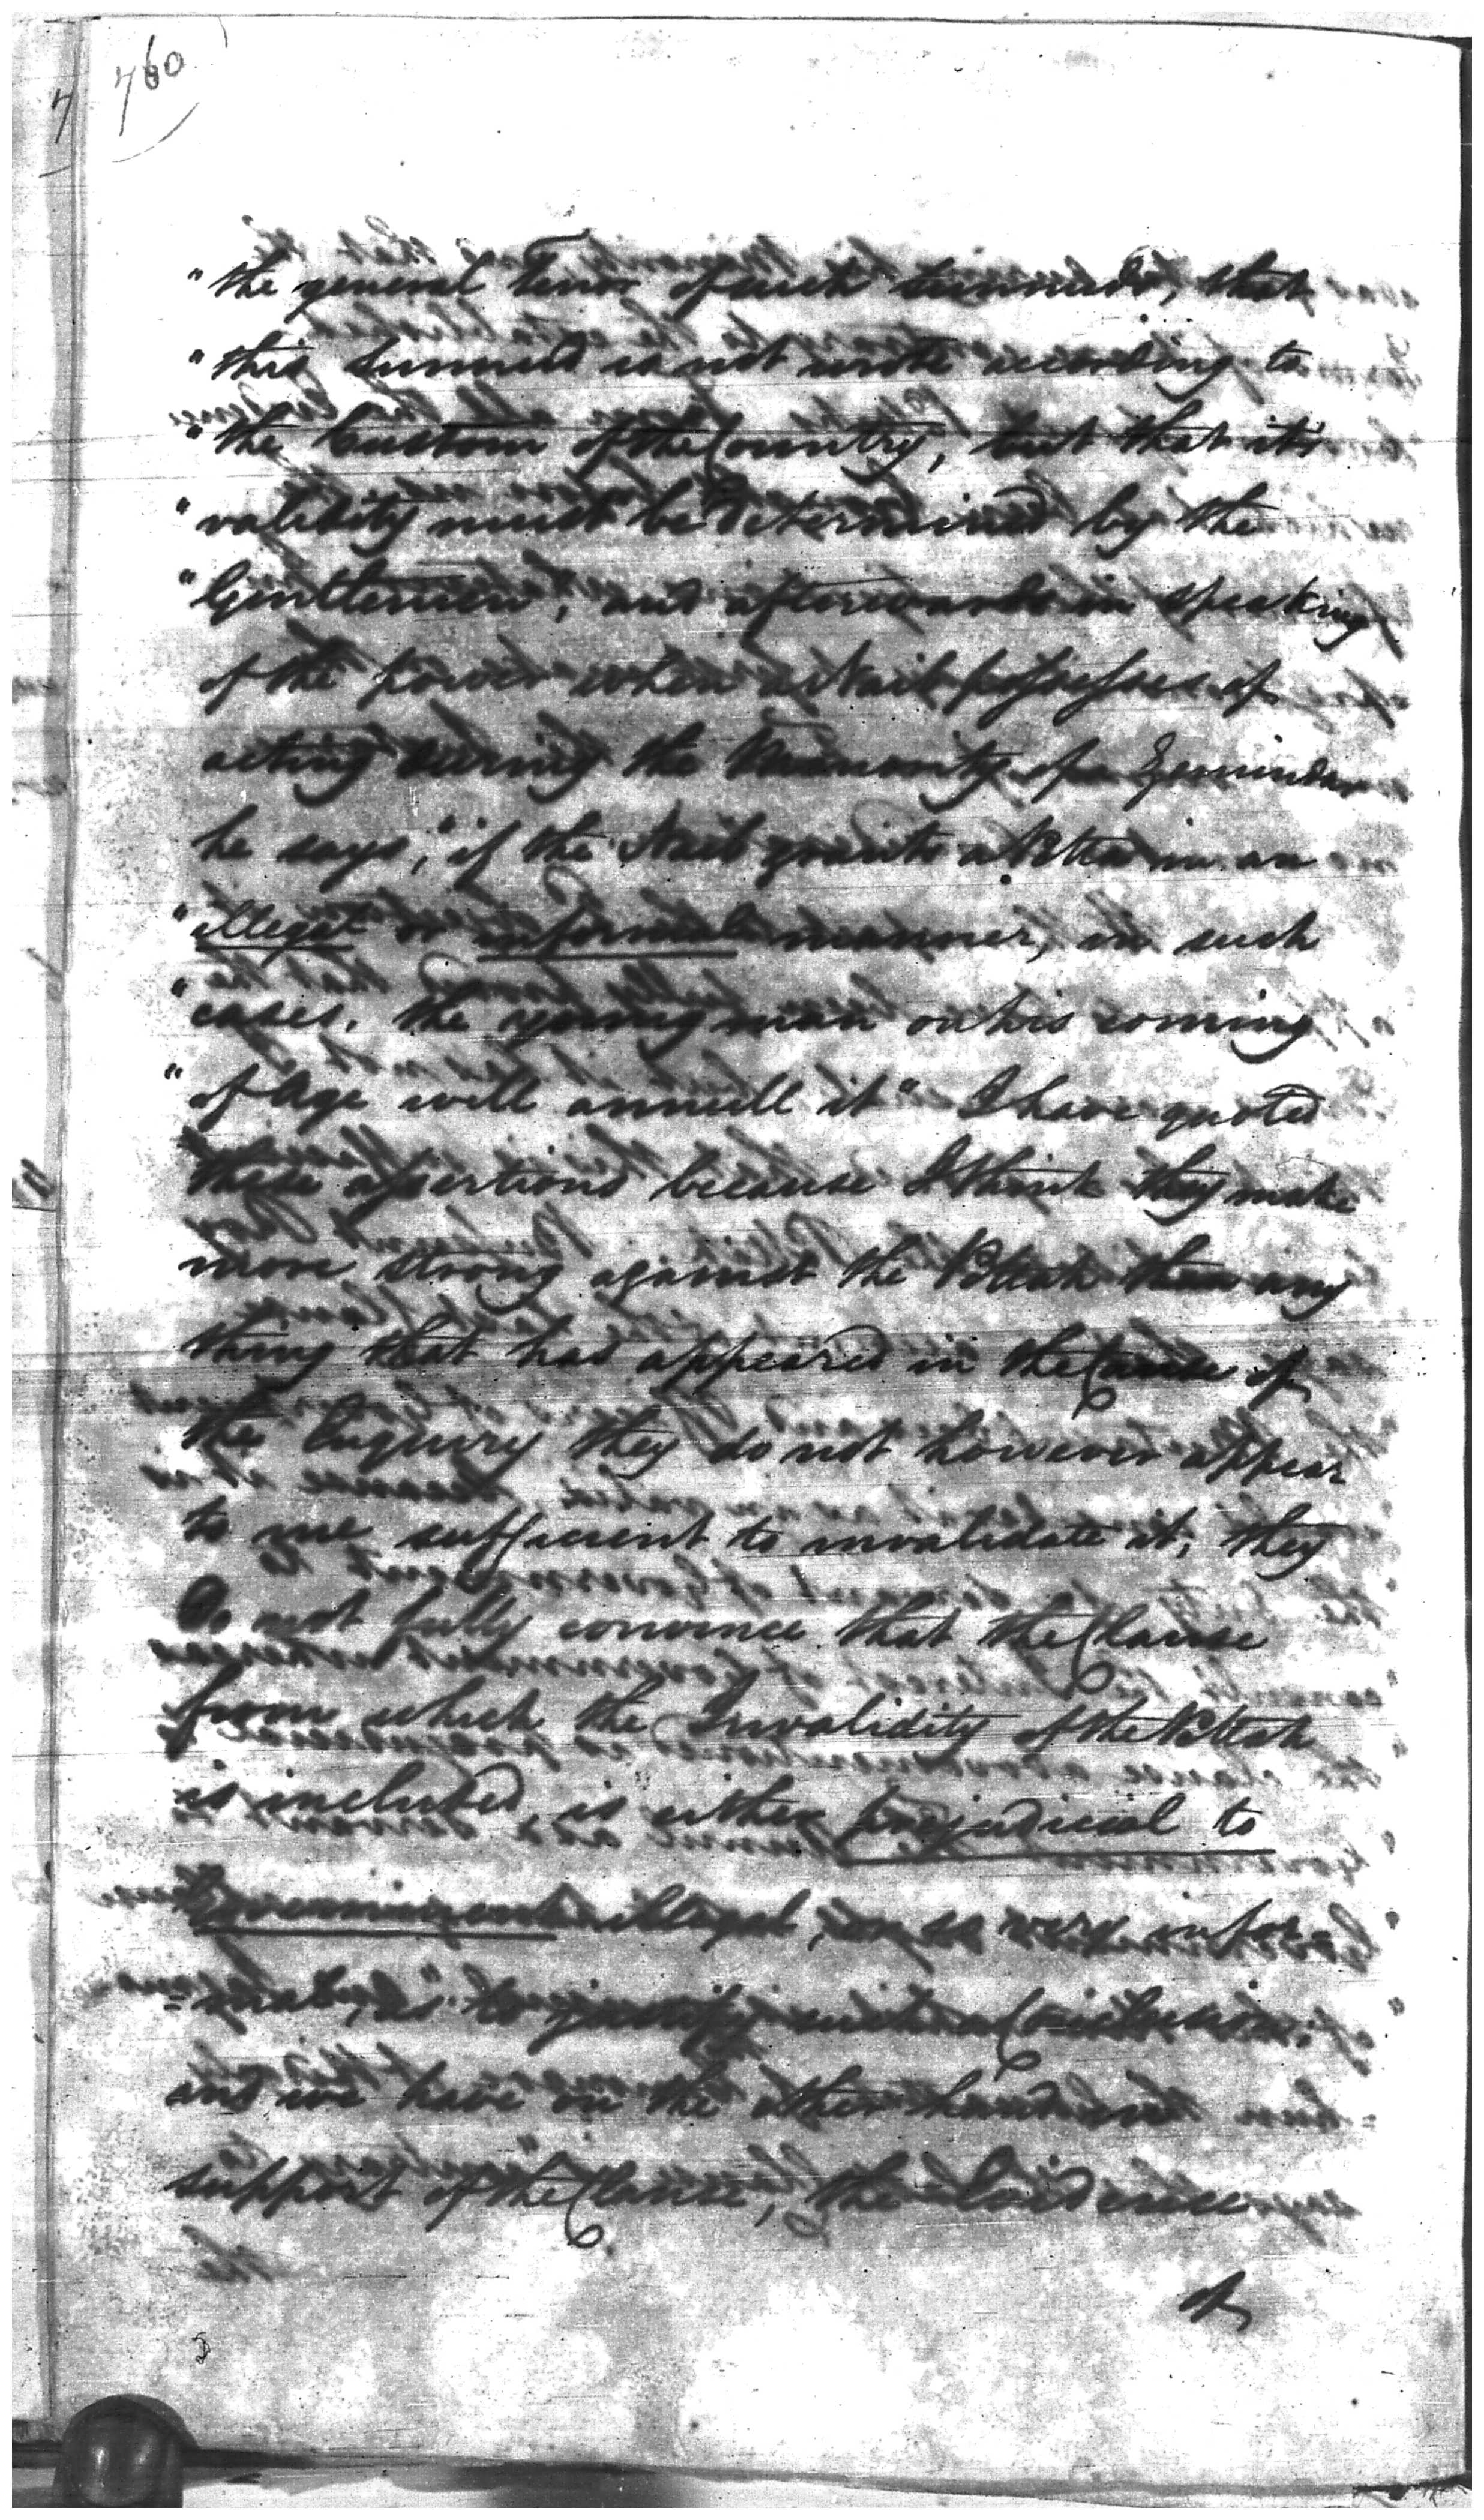 760
"the general Tenor of such sunnuds, that
"this Sunnud is not wrote according to
"the Custom of the Country, but that its
"validity must be determined by the
"Gentlemen", and afterwards in speaking
of the power when a Naib possesses of
acting during the Minority of a Zemindar
he says, "if the Naib grants a Pottah in an
"illegal or informal manner, in such
"cases, the young man on his coming
"of Age will annull it" I have quoted
these assertions because I think they make
more strong against the Pottah than any
thing that had appeared in the Course of
the Enquiry they do not however appear
to me sufficient to invalidate it; they
do not fully convince that the Clause
from which the Invalidity of the Pottah
is included, is either prejudicial to
Government illegal, or so very infor=
=mal, as to justify such a Conclusion;
and we have on the other hand in
support of the Clause, the Evidence
of